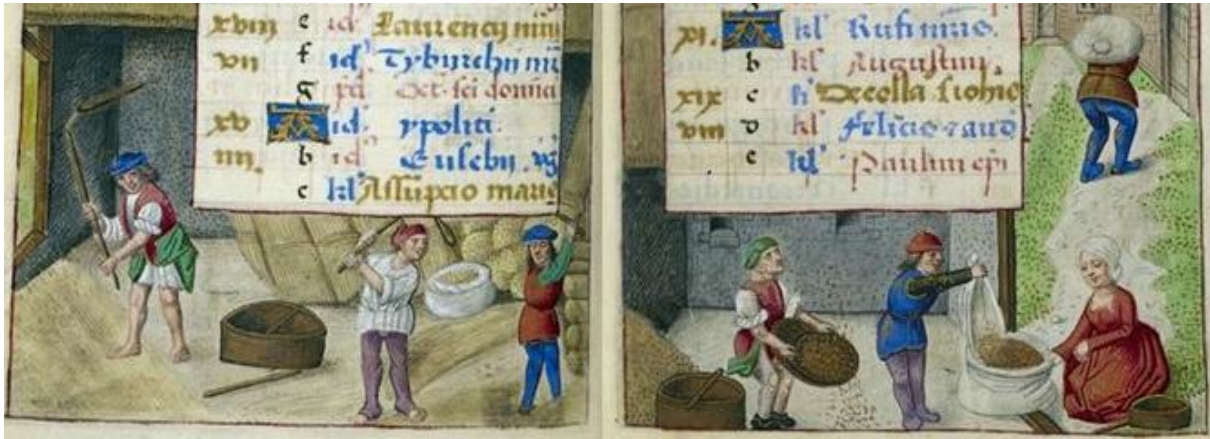 xviii e id' Laurencij mr̄
vii f id' Tyburchij mr̄
g pd
xv A id' ypoliti.
iiii. b id' Eusebij.
c kl' Assūpcio marie
xi. A kl' Rufi mr̄is.
b kl' Augustini.
xix c kl' Decolla. s. iohīs
viii d kl' felicis & aud
e kl' Paulini ep̄i